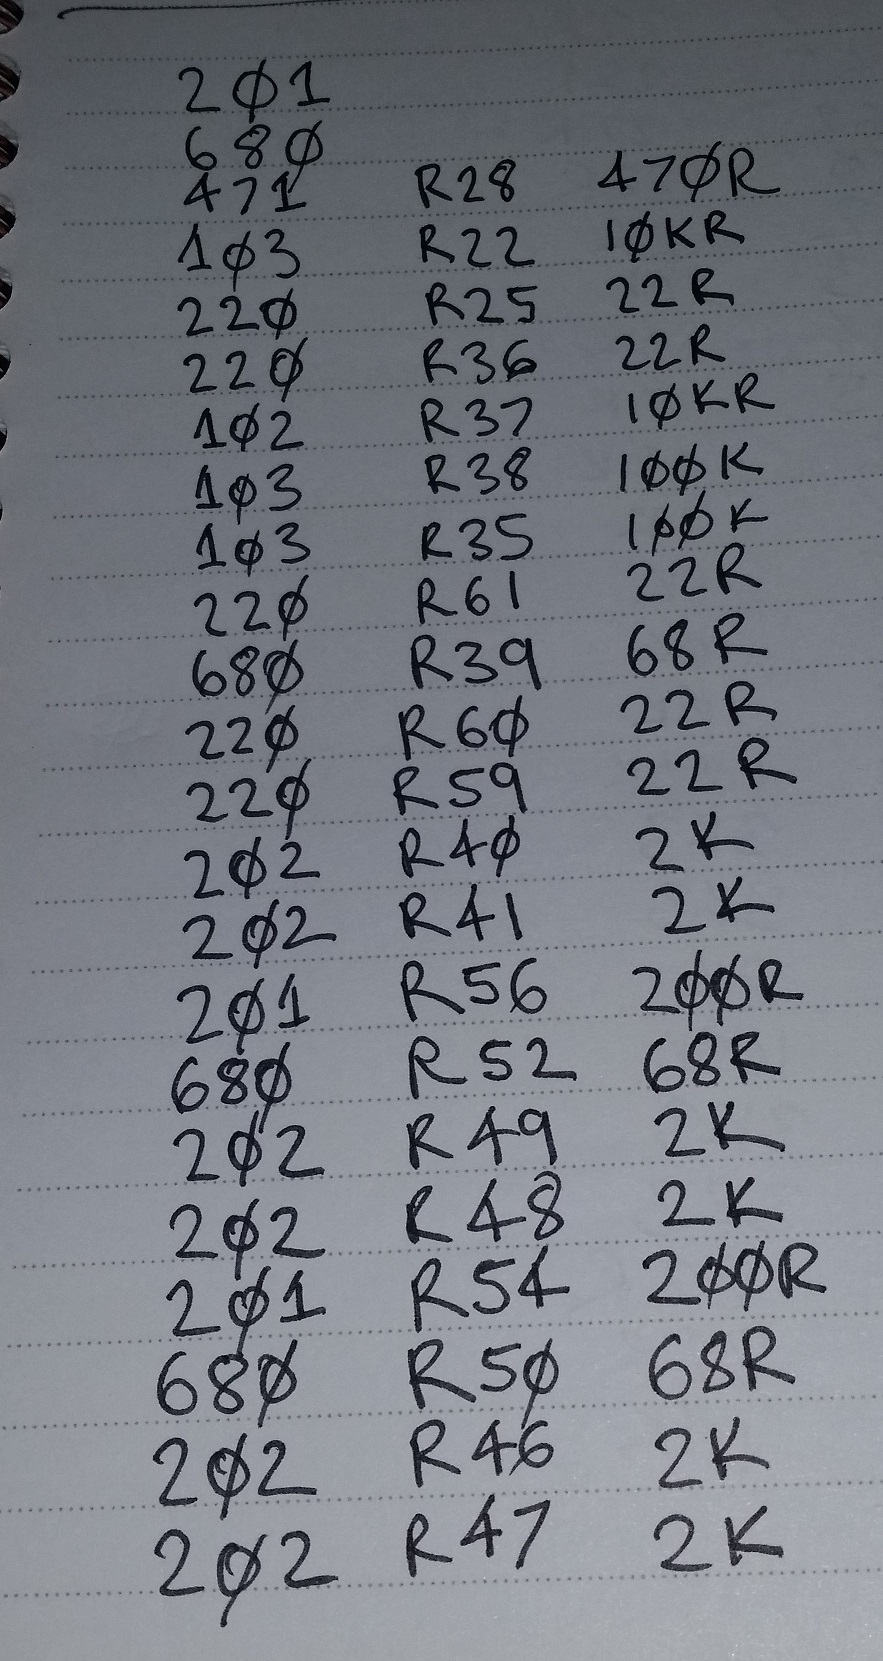 2Ø1
68Ø
471 R28 47ØR
1Ø3 R22 1ØKR
22Ø R25 22R
22Ø R36 22R
1Ø2 R37 1ØKR
1Ø3 R38 1ØØK
1Ø3 R35 1ØØK
22Ø R61 22R
68Ø R39 68R
22Ø R6Ø 22R
22Ø R59 22R
2Ø2 R4Ø 2K
2Ø2 R41 2K
2Ø1 R56 2ØØR
68Ø R52 68R
2Ø2 R49 2K
2Ø2 R48 2K
2Ø1 R54 2ØØR
68Ø R5Ø 68R
2Ø2 R46 2K
2Ø2 R47 2K